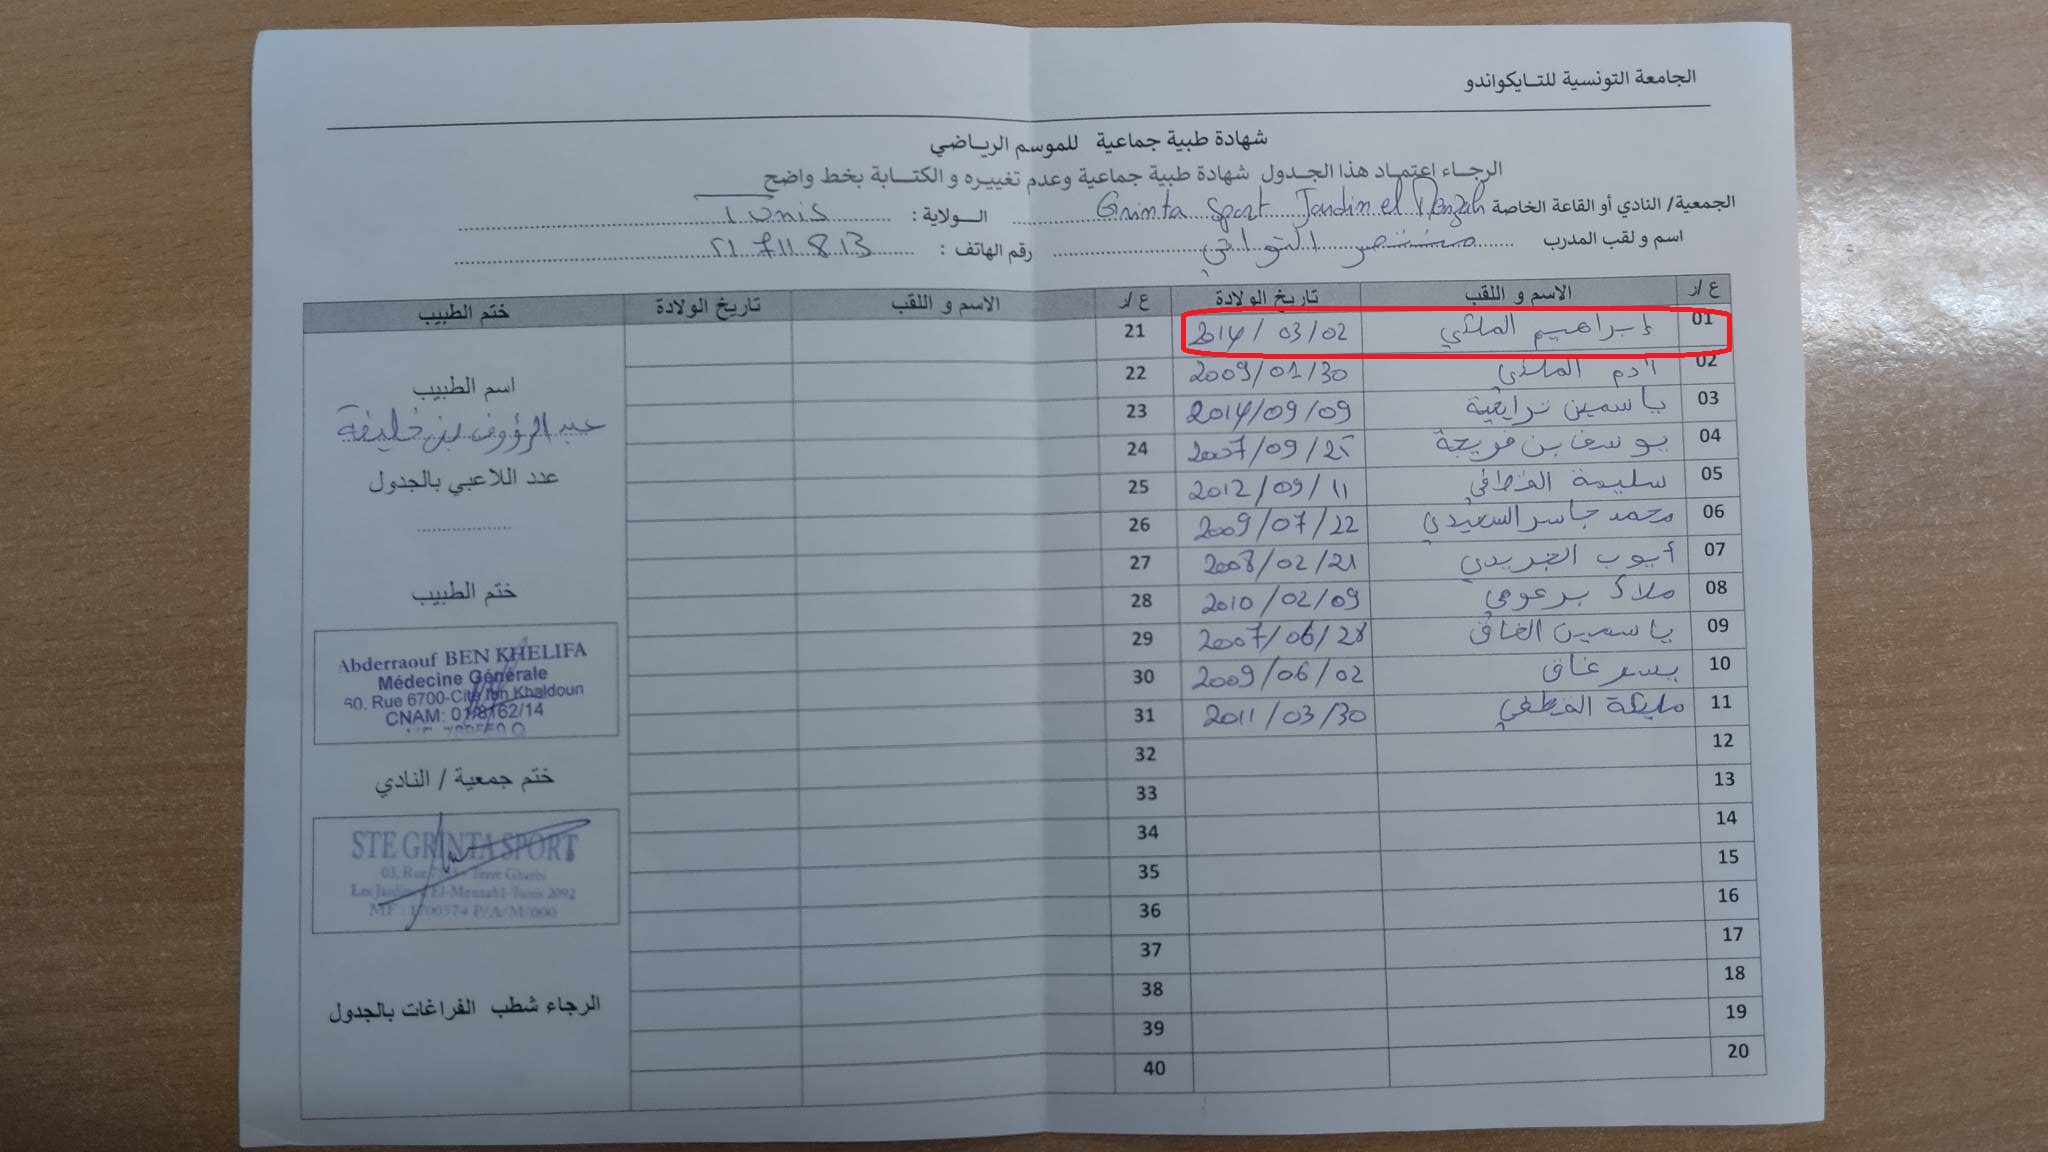 الجامعة التونسية للتايكواندو
شهادة طبية جماعية للموسم الرياضي
الرجاء اعتماد هذا الجدول شهادة طبية جماعية وعدم تغييره و الكتابة بخط واضح
الجمعية/ النادي أو القاعة الخاصة Grinta Sport Jardin el Menzah الولاية : Tunis
اسم و لقب المدرب منتصر التواتي رقم الهاتف : 21 711 813
ع /ر الاسم و اللقب تاريخ الولادة ع /ر الاسم و اللقب تاريخ الولادة ختم الطبيب
01 إبراهيم المللكي 2014/03/02 21
02 آدم 2009/01/30 22
03 ياسمين ترايعية 2014/09/09 23
04 يوسف بن فريجة 2007/09/25 24
05 سليمة القطافي 2012/09/11 25
06 محمد جاسر السعيدي 2009/07/22 26
07 أيوب الجريدي 2008/02/21 27
08 ملاك برعومي 2010/02/09 28
09 ياسمين الغاق 2007/06/28 29
10 يسر غاق 2009/06/02 30
11 مليكة القطفي 2011/03/30 31
12 32
13 33
14 34
15 35
16 36
17 37
18 38
19 39
20 40
اسم الطبيب
عبد الرؤوف بن خليفة
عدد اللاعبي بالجدول
ختم الطبيب
Abderraouf BEN KHELIFA
Médecine Générale
60, Rue 6700-Cité Ibn Khaldoun
CNAM: 01/8162/14
ختم جمعية / النادي
STE GRINTA SPORT
03, Rue Terre Gharbi
Les Jardins d'El-Menzah1-Tunis 2092
MF : 1700574 P/A/M/000
الرجاء شطب الفراغات بالجدول